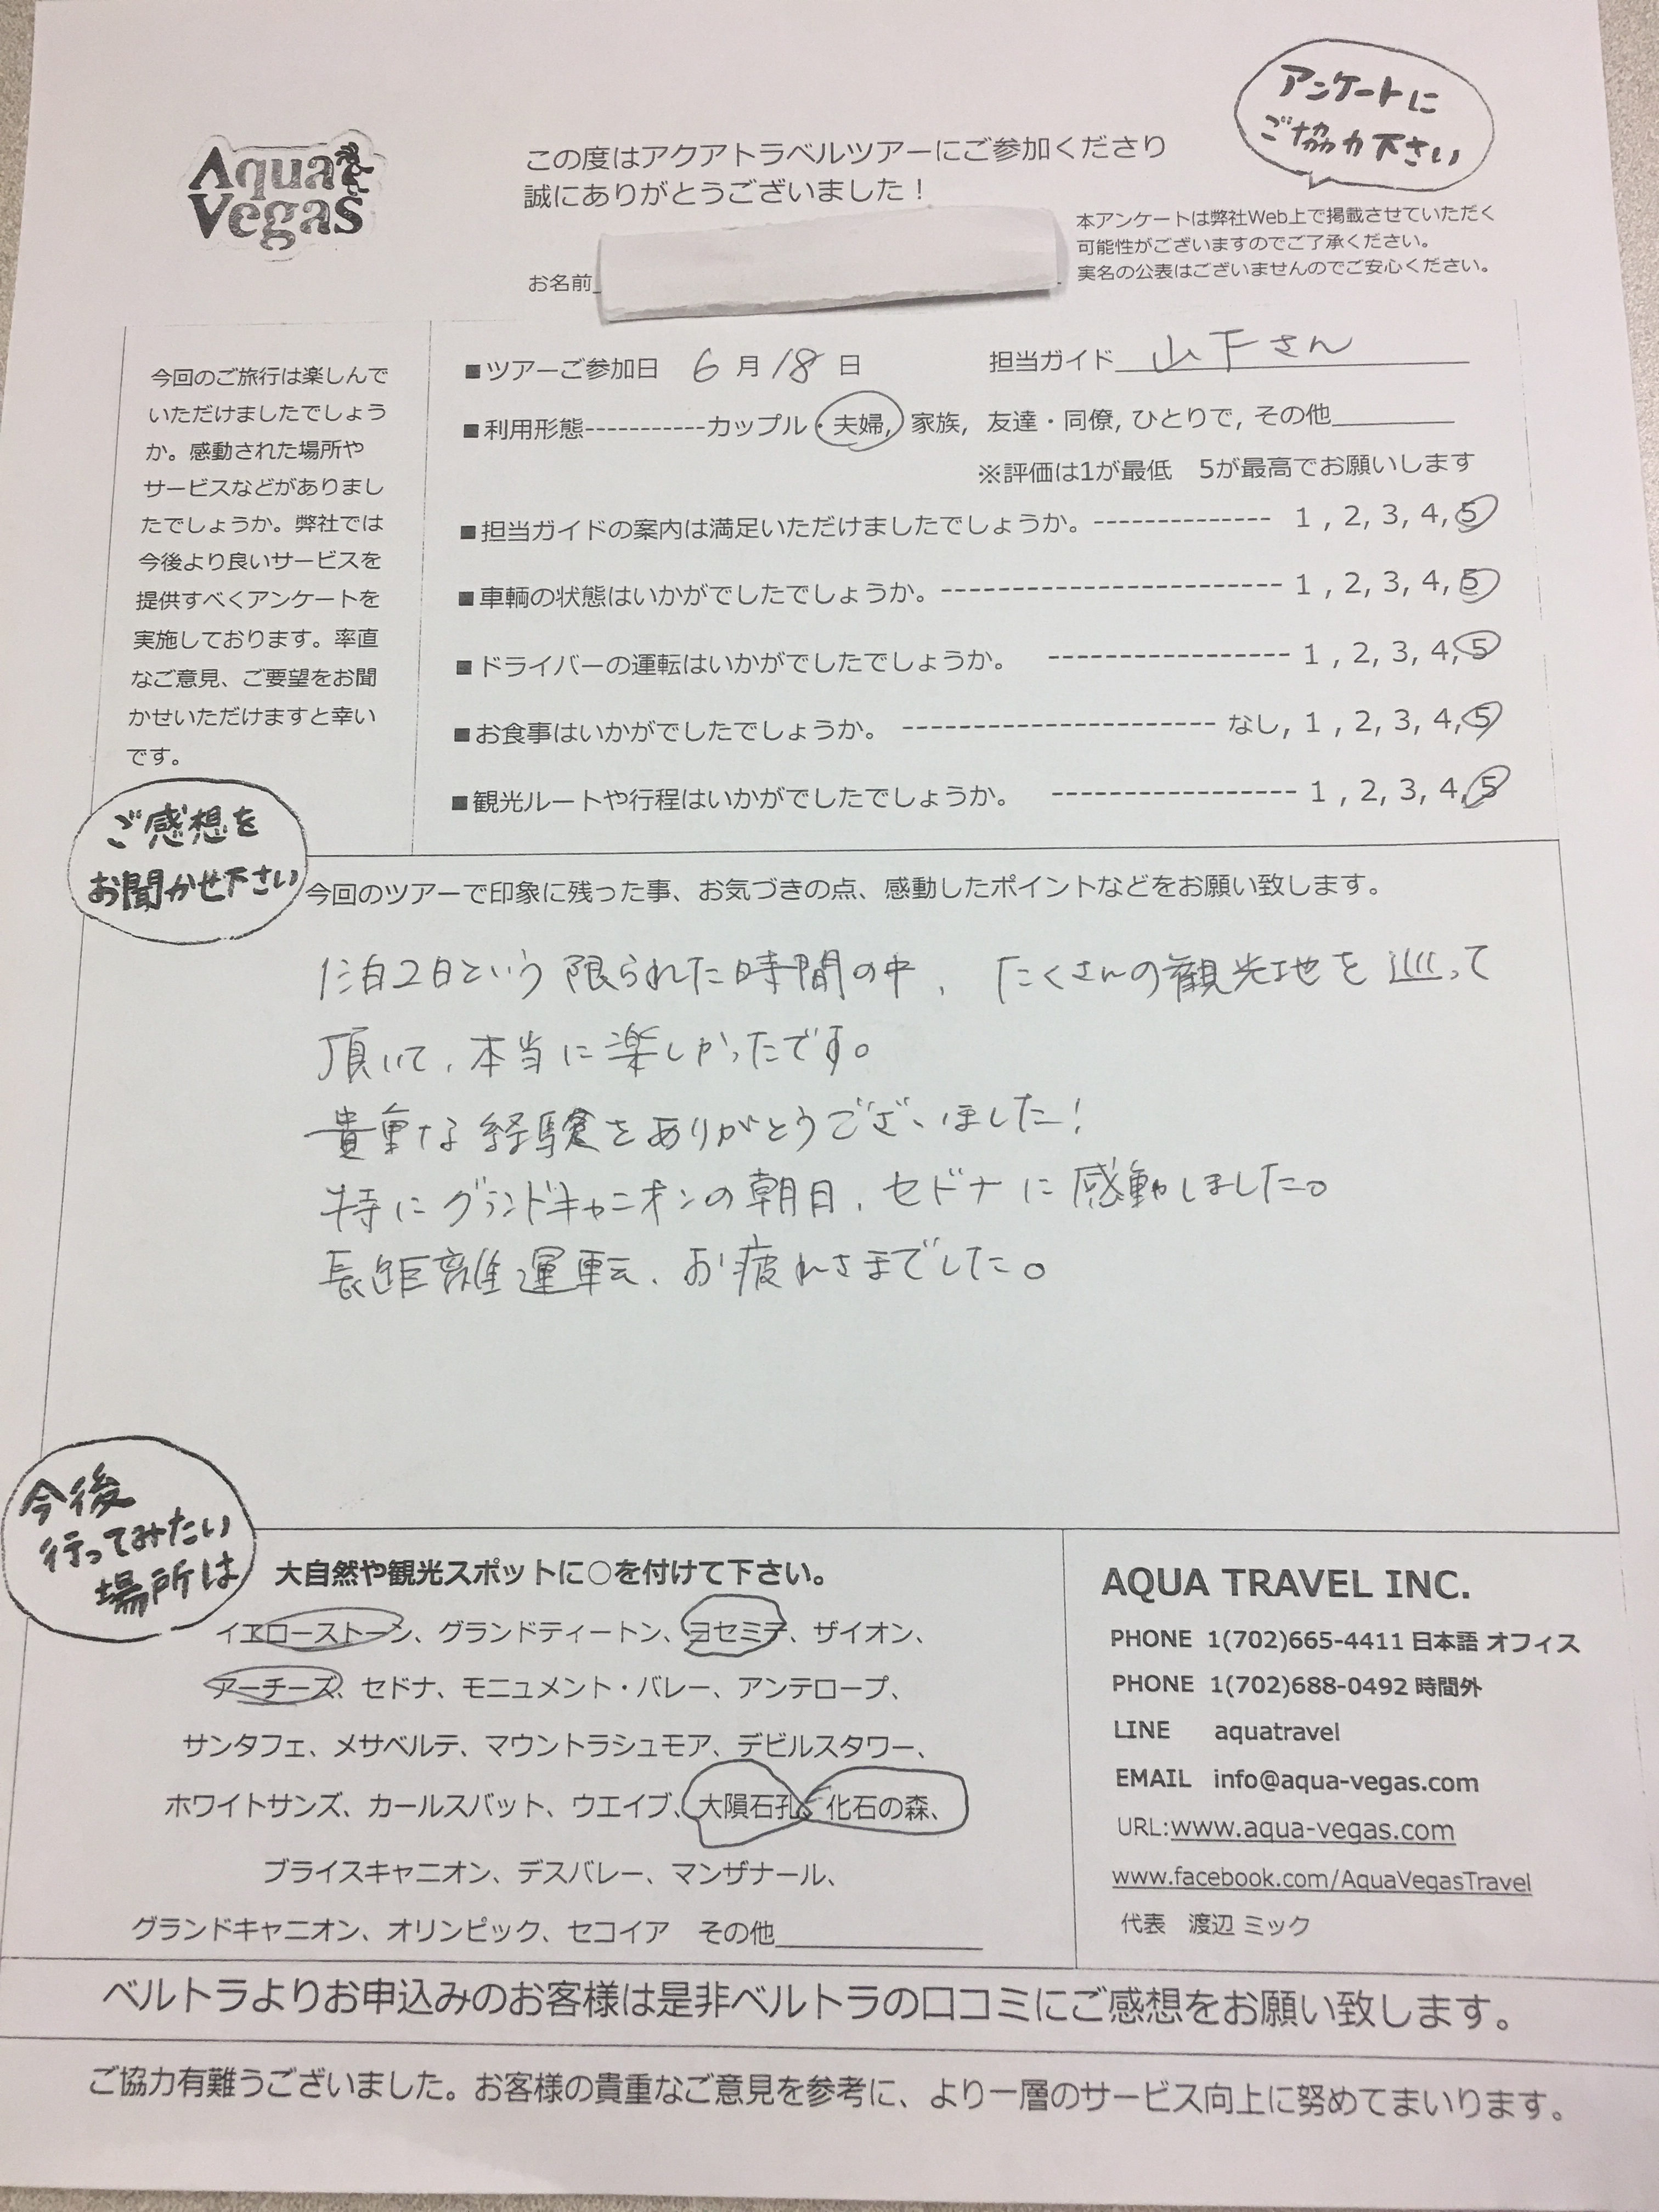 アンケートに
ご協力下さい
Aqua
Vegas
この度はアクアトラベルツアーにご参加くださり
誠にありがとうございました！
本アンケートは弊社Web上で掲載させていただく
可能性がございますのでご了承ください。
実名の公表はございませんのでご安心ください。
お名前
今回のご旅行は楽しんで
いただけましたでしょう
か。感動された場所や
サービスなどがありまし
たでしょうか。弊社では
今後より良いサービスを
提供すべくアンケートを
実施しております。率直
なご意見、ご要望をお聞
かせいただけますと幸い
です。
■ツアーご参加日 6月18日 担当ガイド 山下さん
■利用形態-----------カップル・夫婦, 家族, 友達・同僚, ひとりで, その他
※評価は1が最低 5が最高でお願いします
■担当ガイドの案内は満足いただけましたでしょうか。-------------- 1 , 2, 3, 4, 5
■車輌の状態はいかがでしたでしょうか。----------------------------- 1 , 2, 3, 4, 5
■ドライバーの運転はいかがでしたでしょうか。 ----------------- 1 , 2, 3, 4, 5
■お食事はいかがでしたでしょうか。 --------------------- なし, 1 , 2, 3, 4, 5
■観光ルートや行程はいかがでしたでしょうか。 ----------------- 1 , 2, 3, 4, 5
ご感想を
お聞かせ下さい
今回のツアーで印象に残った事、お気づきの点、感動したポイントなどをお願い致します。
1泊2日という限られた時間の中、たくさんの観光地を巡って
頂いて、本当に楽しかったです。
貴重な経験をありがとうございました！
特にグランドキャニオンの朝日、セドナに感動しました。
長距離運転、お疲れさまでした。
今後
行ってみたい
場所は
大自然や観光スポットに○を付けて下さい。
イエローストーン、グランドティートン、ヨセミテ、ザイオン、
アーチーズ、セドナ、モニュメント・バレー、アンテロープ、
サンタフェ、メサベルテ、マウントラシュモア、デビルスタワー、
ホワイトサンズ、カールスバット、ウエイブ、大隕石孔、化石の森、
ブライスキャニオン、デスバレー、マンザナール、
グランドキャニオン、オリンピック、セコイア その他
AQUA TRAVEL INC.
PHONE 1(702)665-4411 日本語 オフィス
PHONE 1(702)688-0492 時間外
LINE aquatravel
EMAIL info@aqua-vegas.com
URL:www.aqua-vegas.com
www.facebook.com/AquaVegasTravel
代表 渡辺 ミック
ベルトラよりお申込みのお客様は是非ベルトラの口コミにご感想をお願い致します。
ご協力有難うございました。お客様の貴重なご意見を参考に、より一層のサービス向上に努めてまいります。